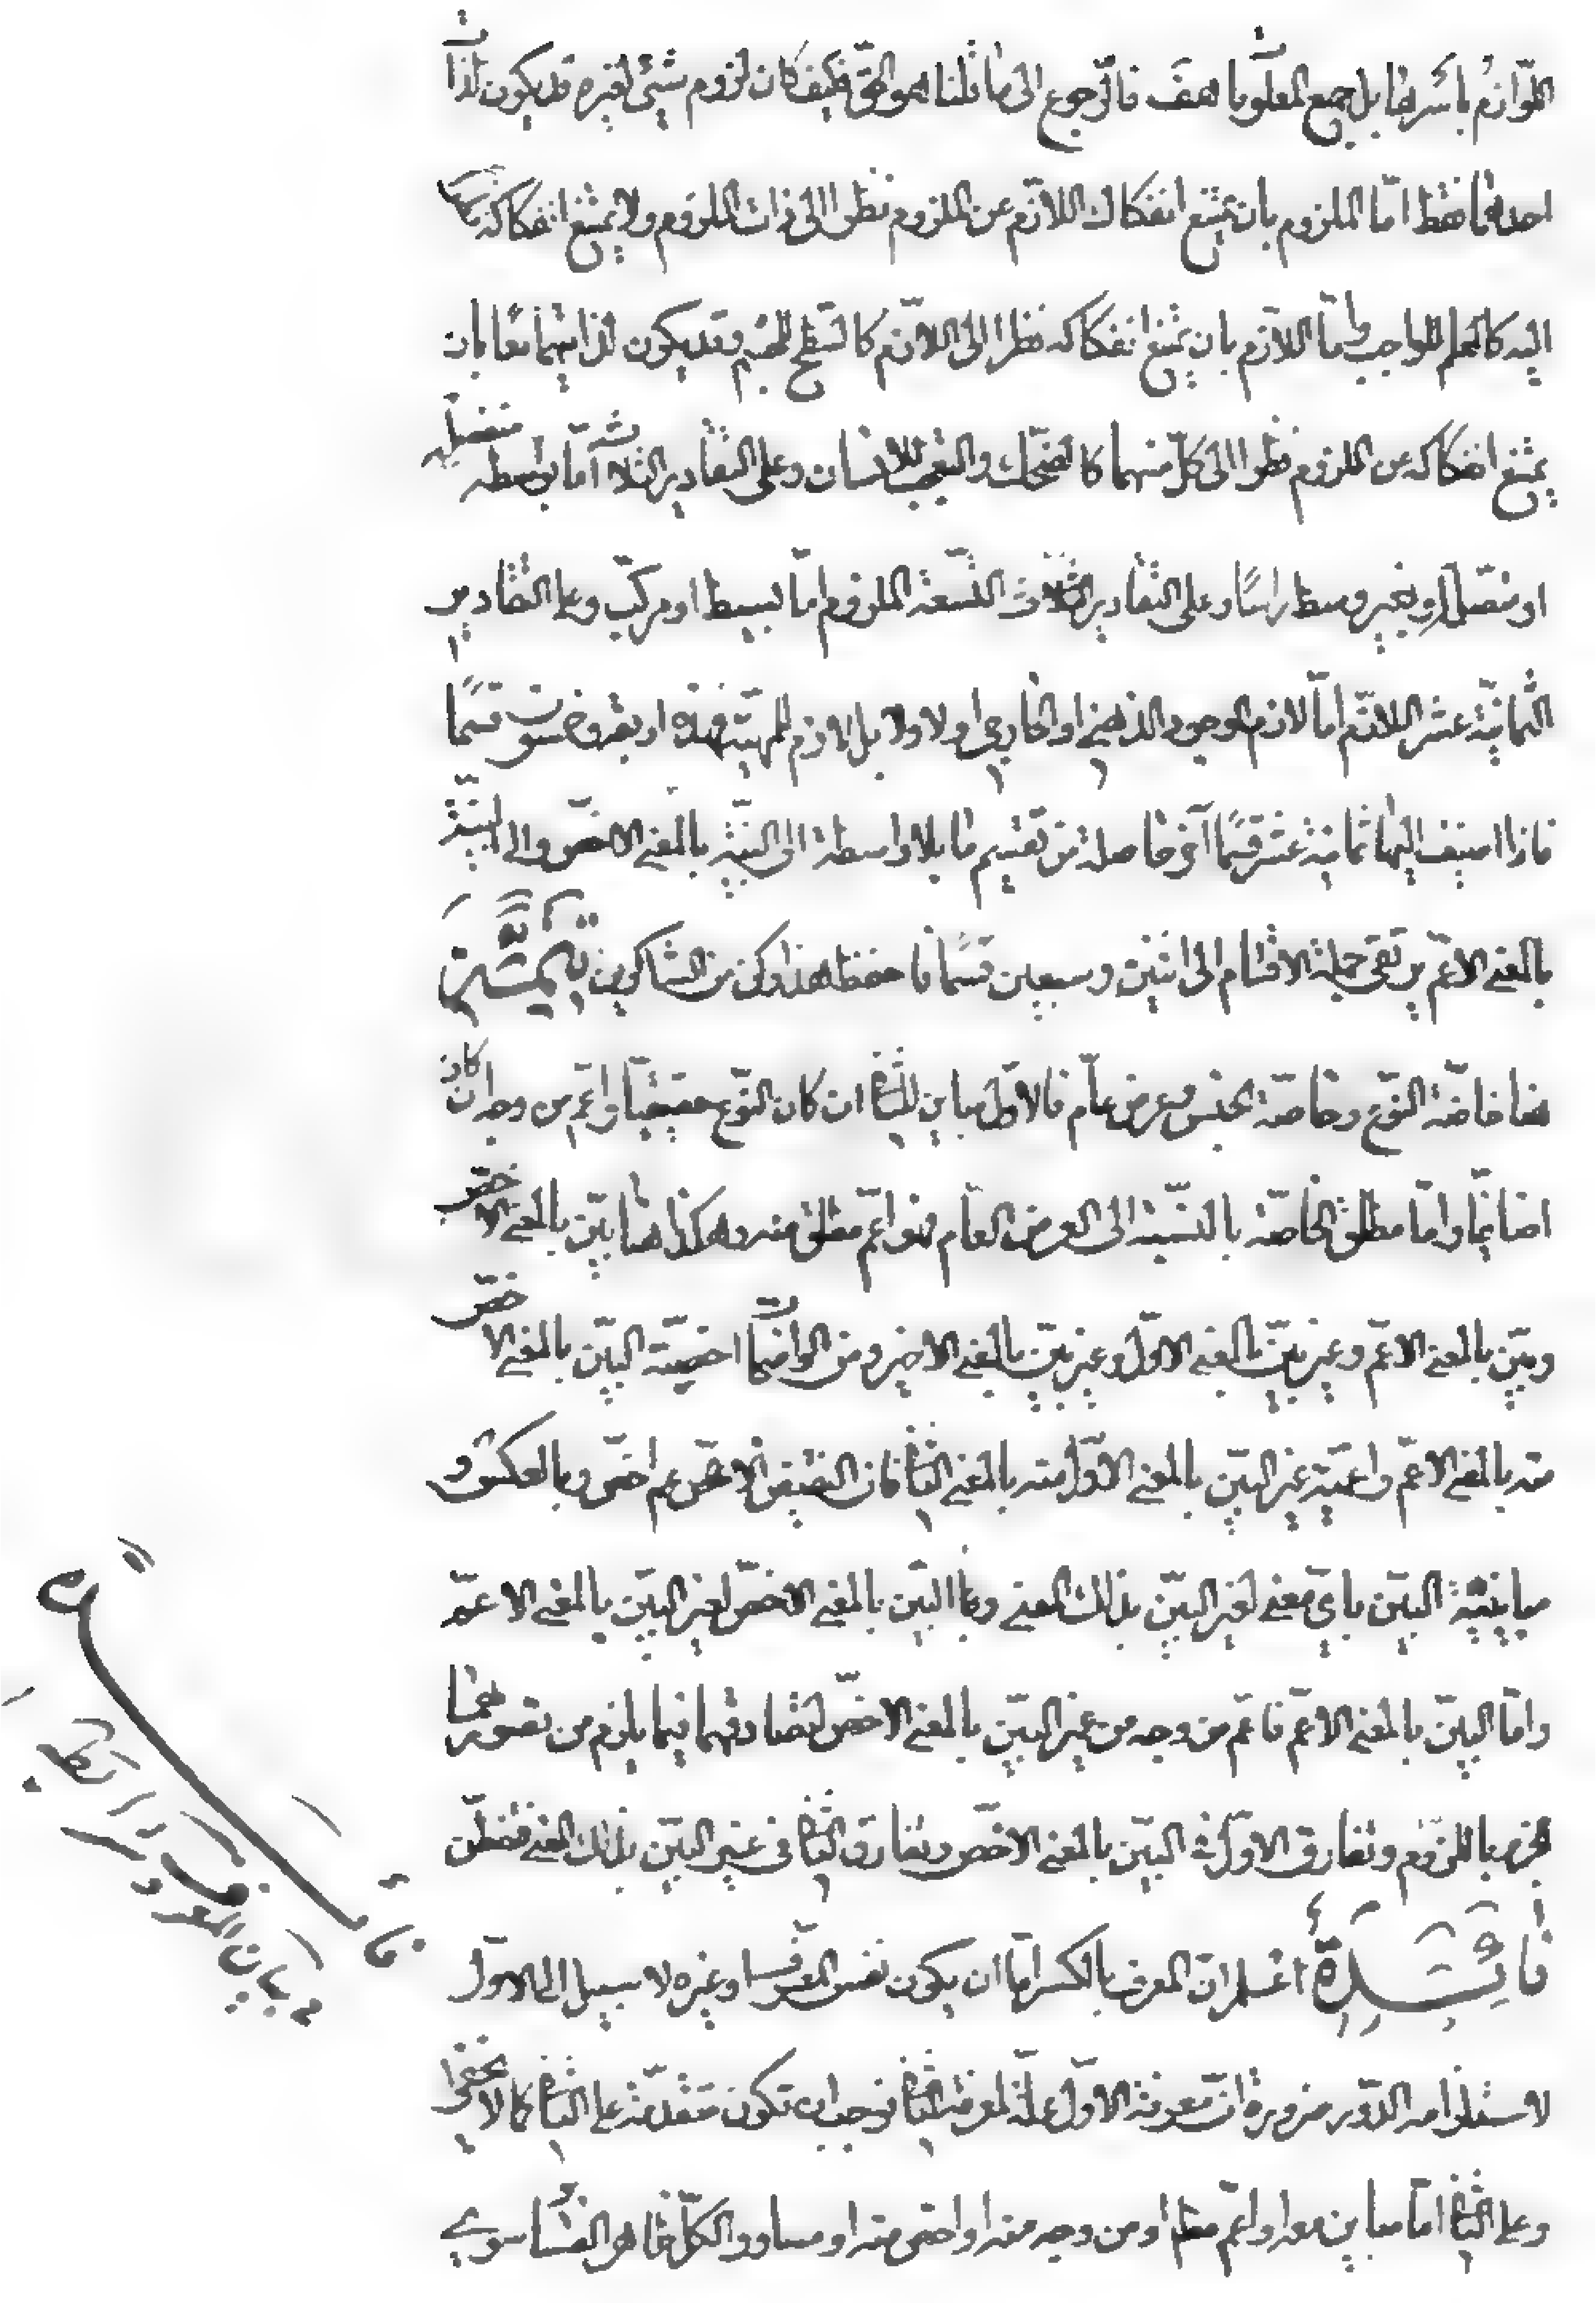 اللّوازم باسرها بل جميع المعلوما هف فالرّجوع الى ما قلنا هو الحقّ فكيف كان لزوم شيئ لغيره قد يكون لذات
احدهما فقط امّا الملزوم بان يمتنع انفكاك اللازم عن الملزوم نظرا الى ذات الملزوم ولا يمتنع انفكاكه نظرا
اليه كالعلم للواجب وامّا اللازم بان يمتنع انفكاكه نظرا الى اللازم كالسّطح للجسم وقد يكون لذاتيهما معا بان
يمتنع انفكاكه عن الملزوم نظرا الى كلّ منهما كالضحّاك والتعجّب للانسان وعلى التقادير الثلاث امّا بواسطه منفصله
او متّصلة او بغير وسط راسًا وعلى التقادير التّسعة الملزوم امّا بسيط او مركّب وعلى التقادير
الثمانية عشر اللازم امّا لازم الوجود الذهني او الخارجي او لا ولا بل لازم للمهيّة فهذه اربعة وخمسون قسمًا
فاذا اضيف اليها ثمانية عشر قسمًا آخر حاصلة من تقسيم ما بلا واسطة الى البيّنة بالمعنى الاخصّ والى البيّنة
بالمعنى الاعمّ يرتقى جملة الاقسام الى اثنين وسبعين قسمًا فاحفظ هذا وكن من الشاكرين
هنا خاصّة النّوع وخاصّة الجنس وعرض عامّ فالاوّل مباين للثاني ان كان النّوع حقيقيّا واعمّ من وجه ان كان
اضافيّا وامّا مطلق الخاصّة بالنسبة الى العرض العامّ فهو اعمّ مطلق منه وهكذا هنا بيّن بالمعنى الاخصّ
وبيّن بالمعنى الاعمّ وغير بيّن بالمعنى الاوّل وغير بيّن بالمعنى الاخير ومن الواضحات اخصيّة البيّن بالمعنى الاخصّ
منه بالمعنى الاعمّ واعميّة غير البيّن بالمعنى الاوّل منه بالمعنى الثاني فان النقيض الاخصّ اعم اخصّ وبالعكس و
مباينة البيّن باىّ معنى لغير البيّن بذلك المعنى والبيّن بالمعنى الاخصّ لغير البيّن بالمعنى الاعمّ
وامّا البيّن بالمعنى الاعمّ فاعمّ من وجه من غير البيّن بالمعنى الاخصّ لتصادقهما فيما يلزم من تصوّرهما
الجزم باللزوم وتفارق الاوّل في البيّن بالمعنى الاخصّ وتفارق الثاني في غير البيّن بذلك المعنى فتفطّن
فائدة اعلم انّ المعرف بالكسر امّا ان يكون نفس المعرّف او غيره لا سبيل الى الاوّل
لاستلزامه الدّور ضرورة انّ معرفة الاوّل علّة لمعرفة الثاني فوجب ان تكون متقدّمة على الثاني كما لا يخفى
وعلى الثاني امّا مباين معه او اعمّ مطلقا او من وجه منه او اخصّ منه او مساو والكلّ ظاهر الفساد سوى
في بيان المعرف